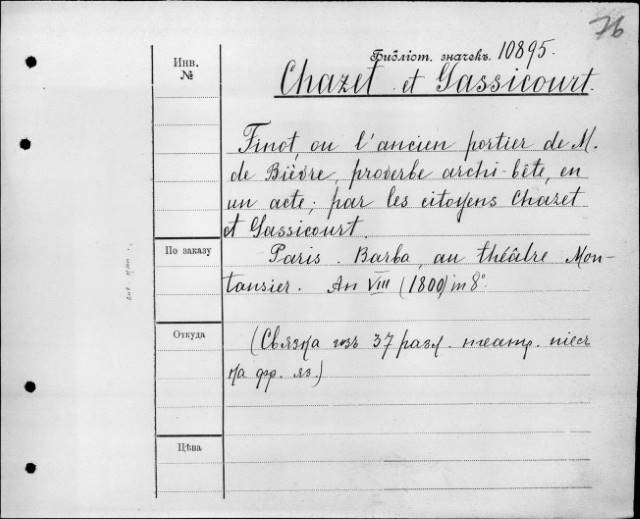 76
Инв.
№
Библіот. значекъ 10895.
Chazet et Gassicourt.
Finot, ou l'ancien portier de M.
de Bièvre, proverbe archi-bête, en
un acte; par les citoyens Chazet
et Gassicourt.
По заказу
Paris. Barba, au théâtre Mon-
tansier. An VIII (1800) in 8°.
Откуда
(Связка изъ 37 разл. театр. пiесъ
на фр. яз.)
Цѣна